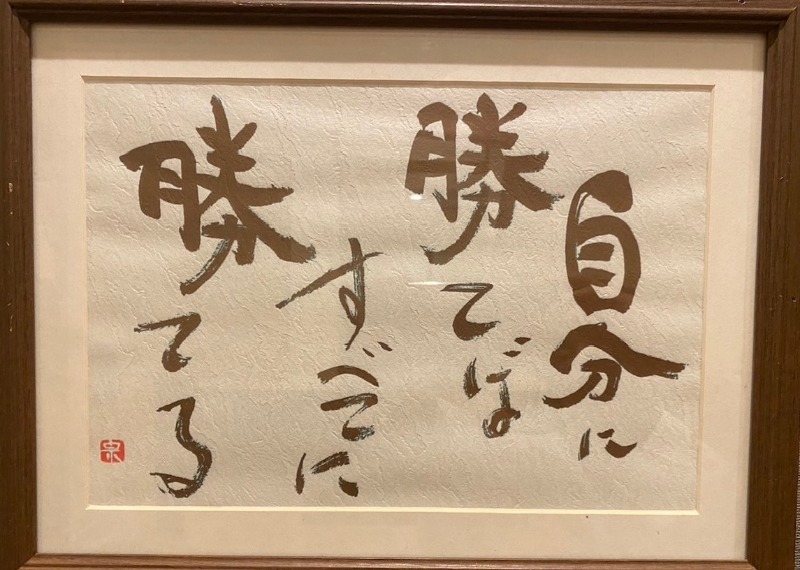 自分に
勝てば
すべてに
勝てる